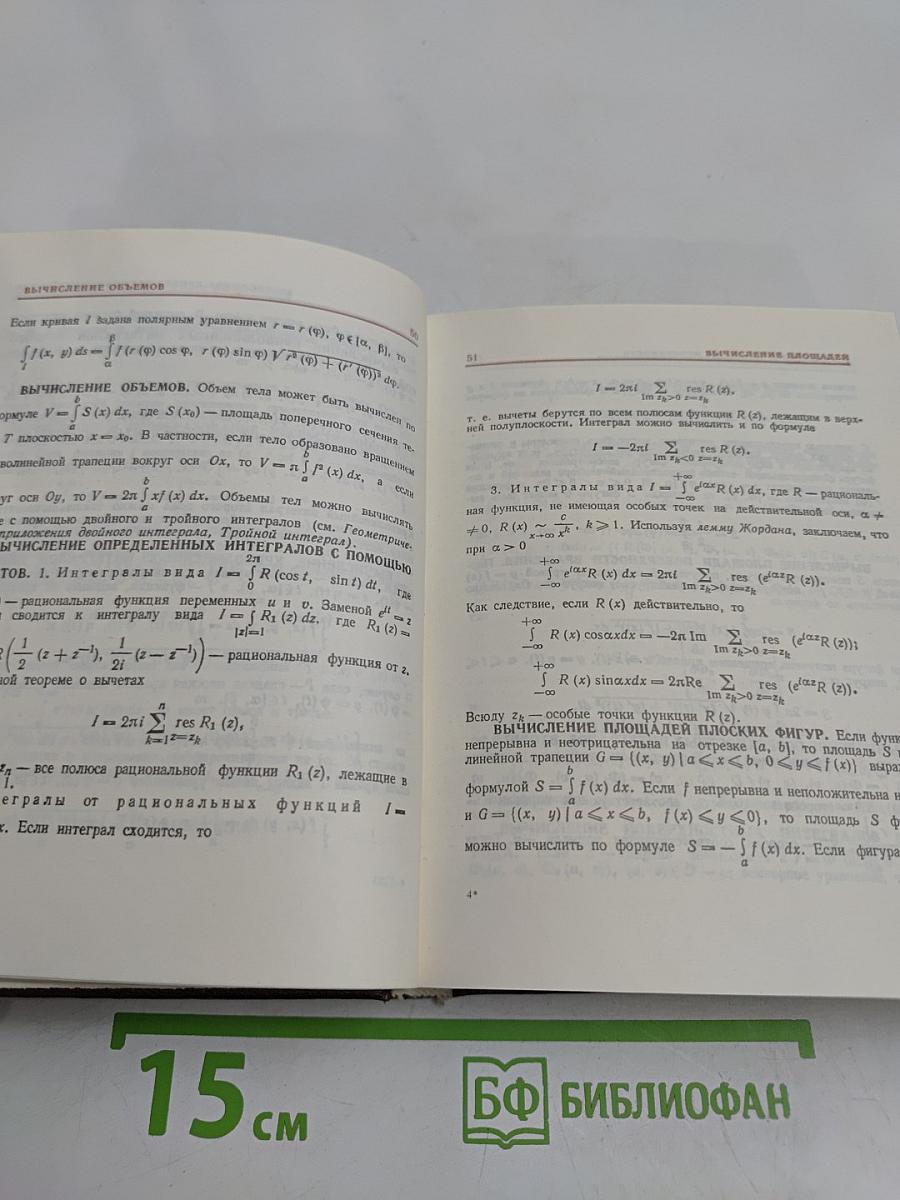 ВЫЧИСЛЕНИЕ ОБЪЕМОВ
50
Если кривая l задана полярным уравнением r = r (φ), φ ∈ [α, β], то
∫_l f (x, y) ds = ∫_α^β f (r (φ) cos φ, r (φ) sin φ) √(r² (φ) + (r′ (φ))²) dφ.
ВЫЧИСЛЕНИЕ ОБЪЕМОВ. Объем тела может быть вычислен по
формуле V = ∫_a^b S (x) dx, где S (x₀) — площадь поперечного сечения те-
T плоскостью x = x₀. В частности, если тело образовано вращением
волинейной трапеции вокруг оси Ox, то V = π ∫_a^b f² (x) dx, а если
уг оси Oy, то V = 2π ∫_a^b xf (x) dx. Объемы тел можно вычислять
е с помощью двойного и тройного интегралов (см. Геометриче-
приложения двойного интеграла, Тройной интеграл).
ВЫЧИСЛЕНИЕ ОПРЕДЕЛЕННЫХ ИНТЕГРАЛОВ С ПОМОЩЬЮ
ТОВ. 1. Интегралы вида I = ∫_0^{2π} R (cos t, sin t) dt, где
— рациональная функция переменных u и v. Заменой e^{it} = z
сводится к интегралу вида I = ∫_{|z|=1} R₁ (z) dz, где R₁ (z) =
R(1/2 (z + z⁻¹), 1/2i (z − z⁻¹)) — рациональная функция от z.
ной теореме о вычетах
I = 2πi ∑_{k=1}^n res_{z=z_k} R₁ (z),
z_n — все полюса рациональной функции R₁ (z), лежащие в
1.
егралы от рациональных функций I =
x. Если интеграл сходится, то
51
ВЫЧИСЛЕНИЕ ПЛОЩАДЕЙ
I = 2πi ∑_{Im z_k>0} res_{z=z_k} R (z),
т. е. вычеты берутся по всем полюсам функции R (z), лежащим в верх-
ней полуплоскости. Интеграл можно вычислить и по формуле
I = −2πi ∑_{Im z_k<0} res_{z=z_k} R (z).
3. Интегралы вида I = ∫_{−∞}^{+∞} e^{iαx} R (x) dx, где R — рациональ-
ная функция, не имеющая особых точек на действительной оси, α ≠
≠ 0, R (x) ~_{x→∞} c/x^k, k ⩾ 1. Используя лемму Жордана, заключаем, что
при α > 0
∫_{−∞}^{+∞} e^{iαx} R (x) dx = 2πi ∑_{Im z_k>0} res_{z=z_k} (e^{iαz} R (z)).
Как следствие, если R (x) действительно, то
∫_{−∞}^{+∞} R (x) cosαxdx = −2π Im ∑_{Im z_k>0} res_{z=z_k} (e^{iαz} R (z));
∫_{−∞}^{+∞} R (x) sinαxdx = 2πRe ∑_{Im z_k>0} res_{z=z_k} (e^{iαz} R (z)).
Всюду z_k — особые точки функции R (z).
ВЫЧИСЛЕНИЕ ПЛОЩАДЕЙ ПЛОСКИХ ФИГУР. Если функ
непрерывна и неотрицательна на отрезке [a, b], то площадь S
линейной трапеции G = {(x, y) | a ⩽ x ⩽ b, 0 ⩽ y ⩽ f (x)} выра
формулой S = ∫_a^b f (x) dx. Если f непрерывна и неположительна н
и G = {(x, y) | a ⩽ x ⩽ b, f (x) ⩽ y ⩽ 0}, то площадь S ф
можно вычислить по формуле S = − ∫_a^b f (x) dx. Если фигура
4*
15 см
БФ БИБЛИОФАН